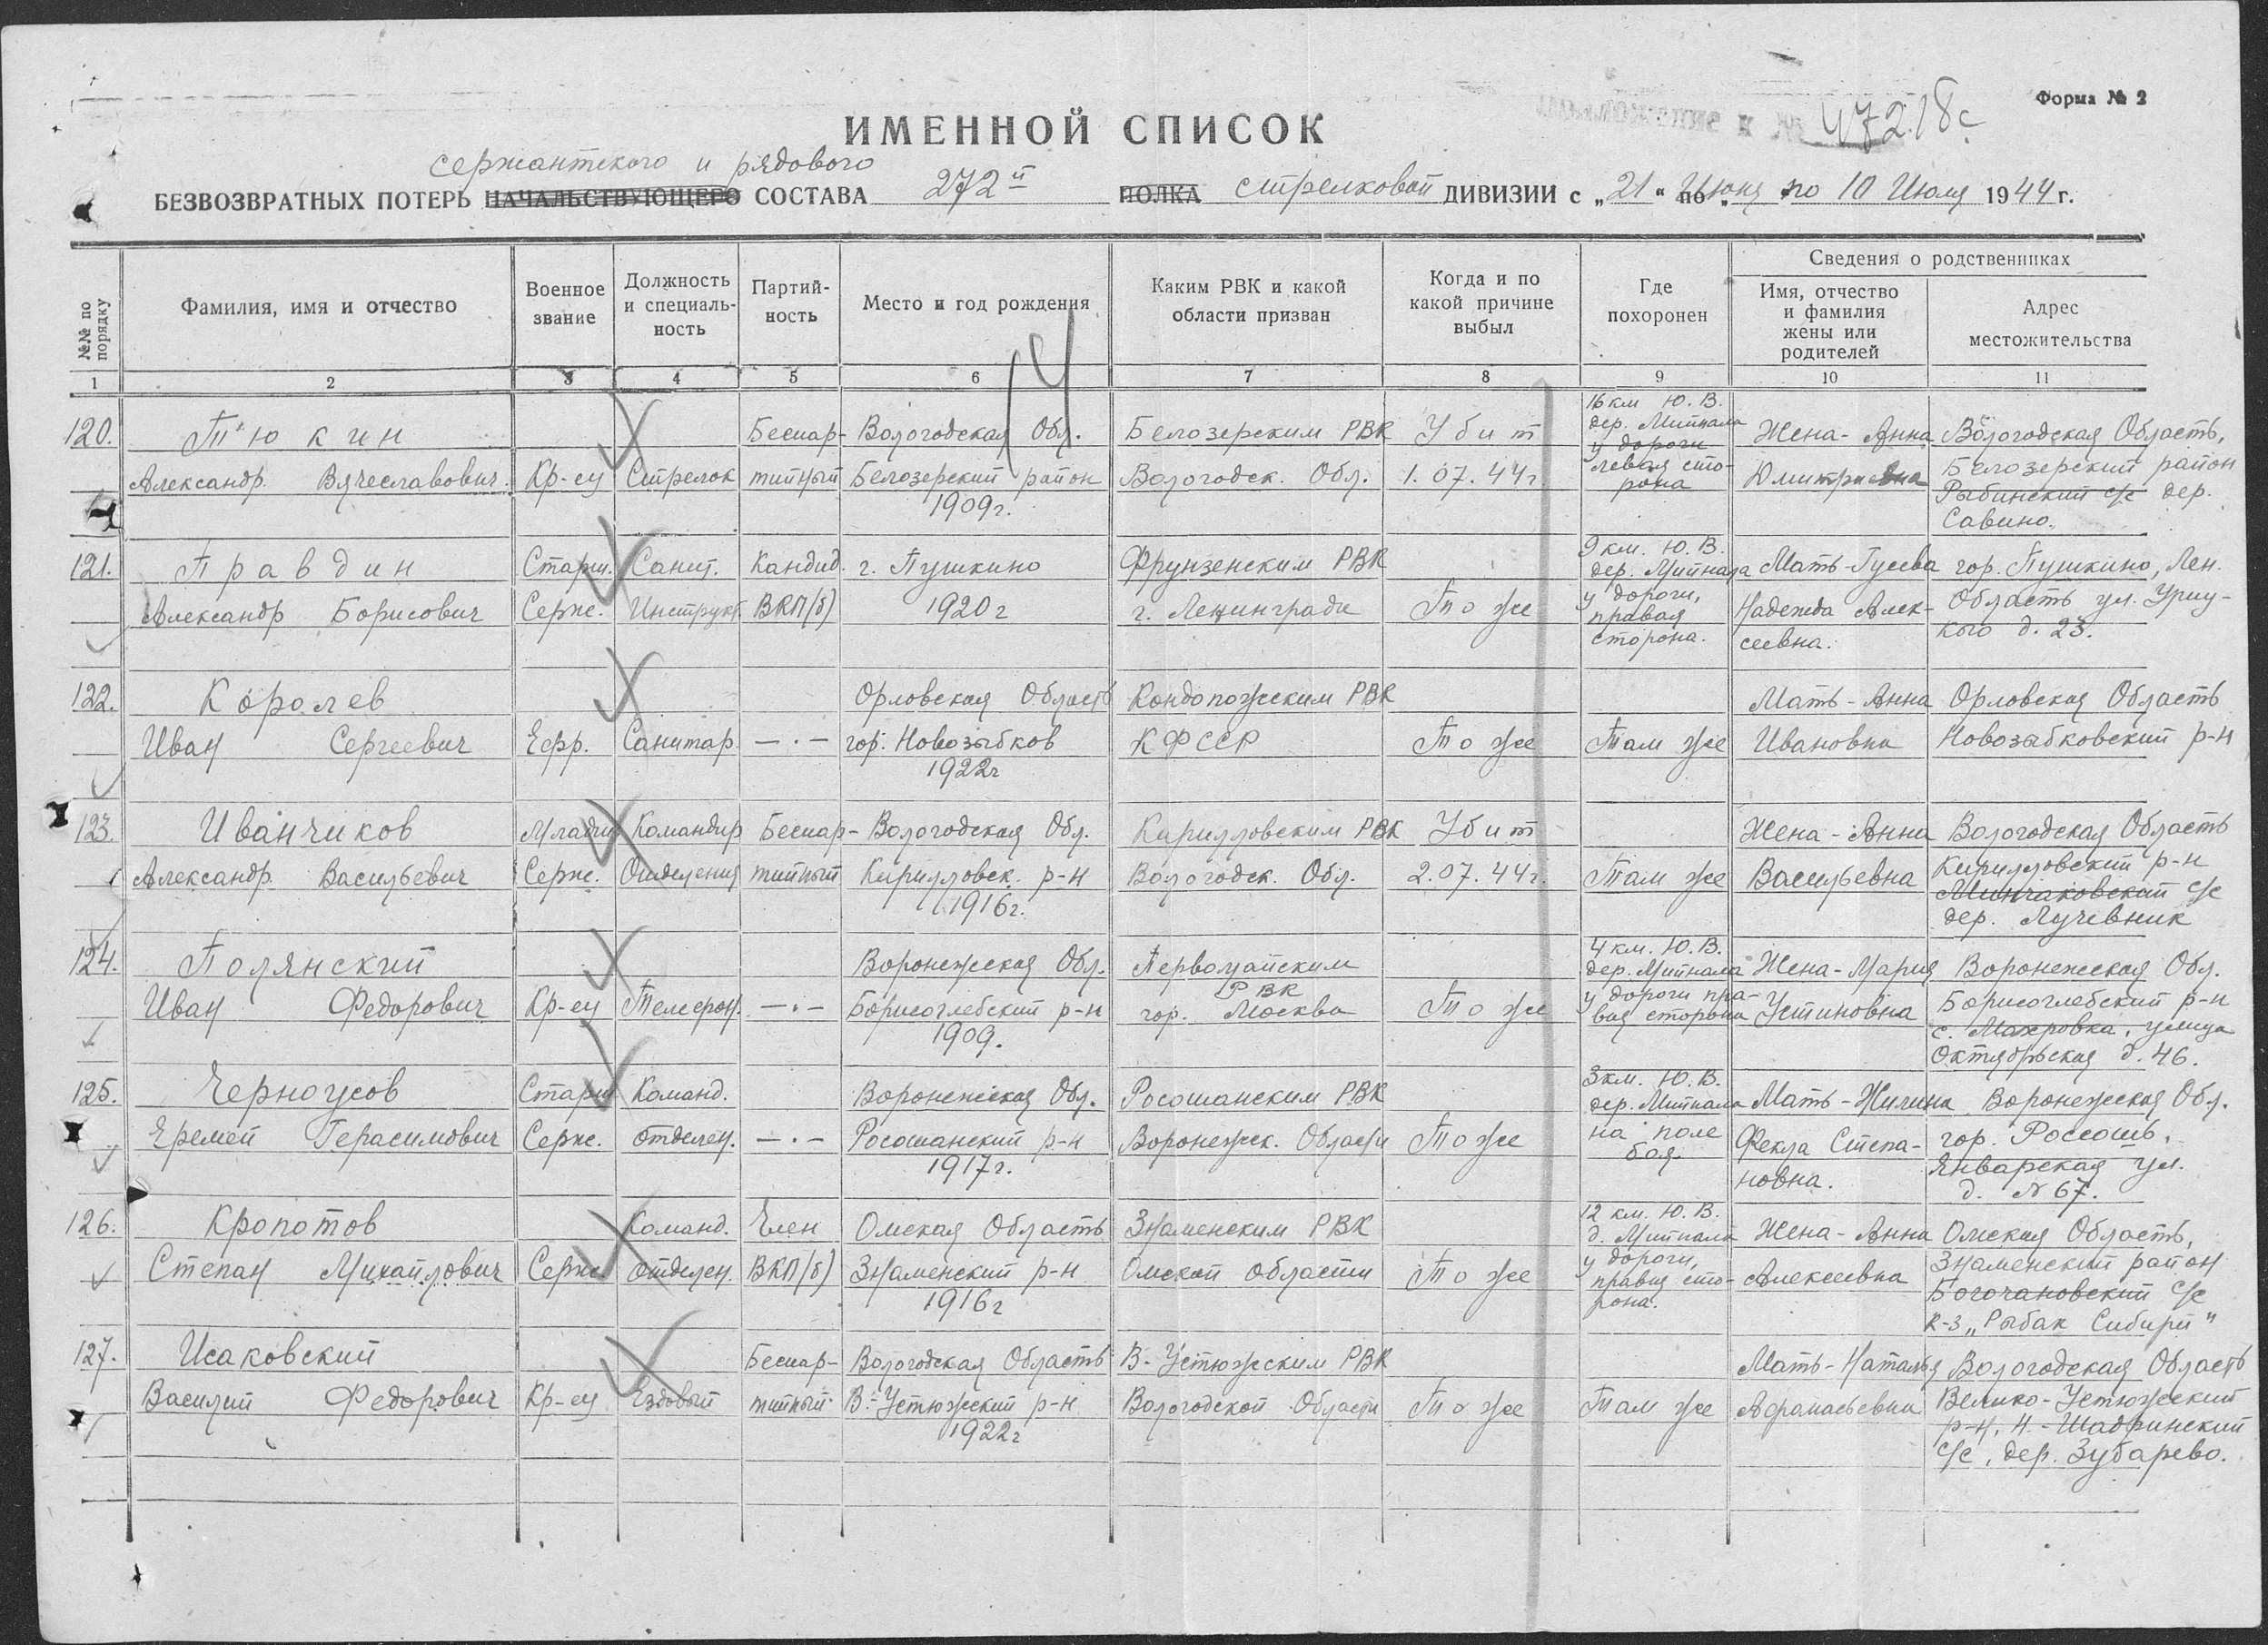 Форма № 2
47218с
ИМЕННОЙ СПИСОК
сержантского и рядового
БЕЗВОЗВРАТНЫХ ПОТЕРЬ НАЧАЛЬСТВУЮЩЕГО СОСТАВА 272й ПОЛКА стрелковой ДИВИЗИИ с „21“ по „Июня по 10 Июля 1944 г.
№№ по порядку
Фамилия, имя и отчество
Военное звание
Должность и специаль-ность
Партий-ность
Место и год рождения
Каким РВК и какой области призван
Когда и по какой причине выбыл
Где похоронен
Сведения о родственниках
Имя, отчество и фамилия жены или родителей
Адрес местожительства
1 2 3 4 5 6 7 8 9 10 11
14
120. Тюкин
Александр Вячеславович
Кр-ец
Стрелок
Беспар-
тийный
Вологодская Обл.
Белозерский район
1909г.
Белозерским РВК
Вологодск. Обл.
Убит
1.07.44г.
16 км Ю.В.
дер. Мийнала
у дороги
левая сто-
рона
Жена-Анна
Дмитриевна
Вологодская Область,
Белозерский район
Рыбинский с/с дер.
Савино.
121. Правдин
Александр Борисович
Старш.
Серж.
Санит.
Инструкт.
Кандид.
ВКП(б)
г. Пушкино
1920г
Фрунзенским РВК
г. Ленинграда
То же
9 км. Ю.В.
дер. Мийнала
у дороги,
правая
сторона.
Мать-Гусева
Надежда Алек-
сеевна.
гор. Пушкино, Лен.
Область ул. Уриц-
кого д. 23.
122. Королев
Иван Сергеевич
Ефр.
Санитар
—·—
Орловская Область
гор. Новозыбков
1922г
Кондопожским РВК
КФССР
То же
Там же
Мать-Анна
Ивановна
Орловская Область
Новозыбковский р-н
123. Иванчиков
Александр Васильевич
Младш
Серж.
Командир
Отделения
Беспар-
тийный
Вологодская Обл.
Кирилловск. р-н
1916г.
Кирилловским РВК
Вологодск. Обл.
Убит
2.07.44г.
Там же
Жена-Анна
Васильевна
Вологодская Область
Кирилловский р-н
с/с
дер. Лучевник
124. Полянский
Иван Федорович
Кр-ец
Телефон.
—·—
Воронежская Обл.
Борисоглебский р-н
1909.
Первомайским
РВК
гор. Москва
То же
4 км. Ю.В.
дер. Мийнала
у дороги пра-
вая сторона
Жена-Мария
Устиновна
Воронежская Обл.
Борисоглебский р-н
с. Махровка, улица
Октябрьская д. 46.
125. Черноусов
Еремей Герасимович
Старш
Серж.
Команд.
отделен.
—·—
Воронежская Обл.
Росошанский р-н
1917г.
Росошанским РВК
Воронежск. Области
То же
3 км. Ю.В.
дер. Мийнала
на поле
боя.
Мать-Жилина
Фекла Степа-
новна.
Воронежская Обл.
гор. Россошь,
Январская ул.
д. № 67.
126. Кропотов
Степан Михайлович
Серж
Команд.
отделен.
Член
ВКП(б)
Омская Область
Знаменский р-н
1916г
Знаменским РВК
Омской области
То же
12 км. Ю.В.
д. Мийнала
у дороги,
правая сто-
рона.
Жена-Анна
Алексеевна
Омская Область,
Знаменский район
Богочановский с/с
к-з „Рыбак Сибири"
127. Исаковский
Василий Федорович
Кр-ец
Ездовый
Беспар-
тийный
Вологодская Область
В-Устюжский р-н
1922г
В-Устюжским РВК
Вологодской Области
То же
Там же
Мать-Наталья
Афанасьевна
Вологодская Область
Велико-Устюжский
р-н, Н.-Шадринский
с/с, дер. Зубарево.